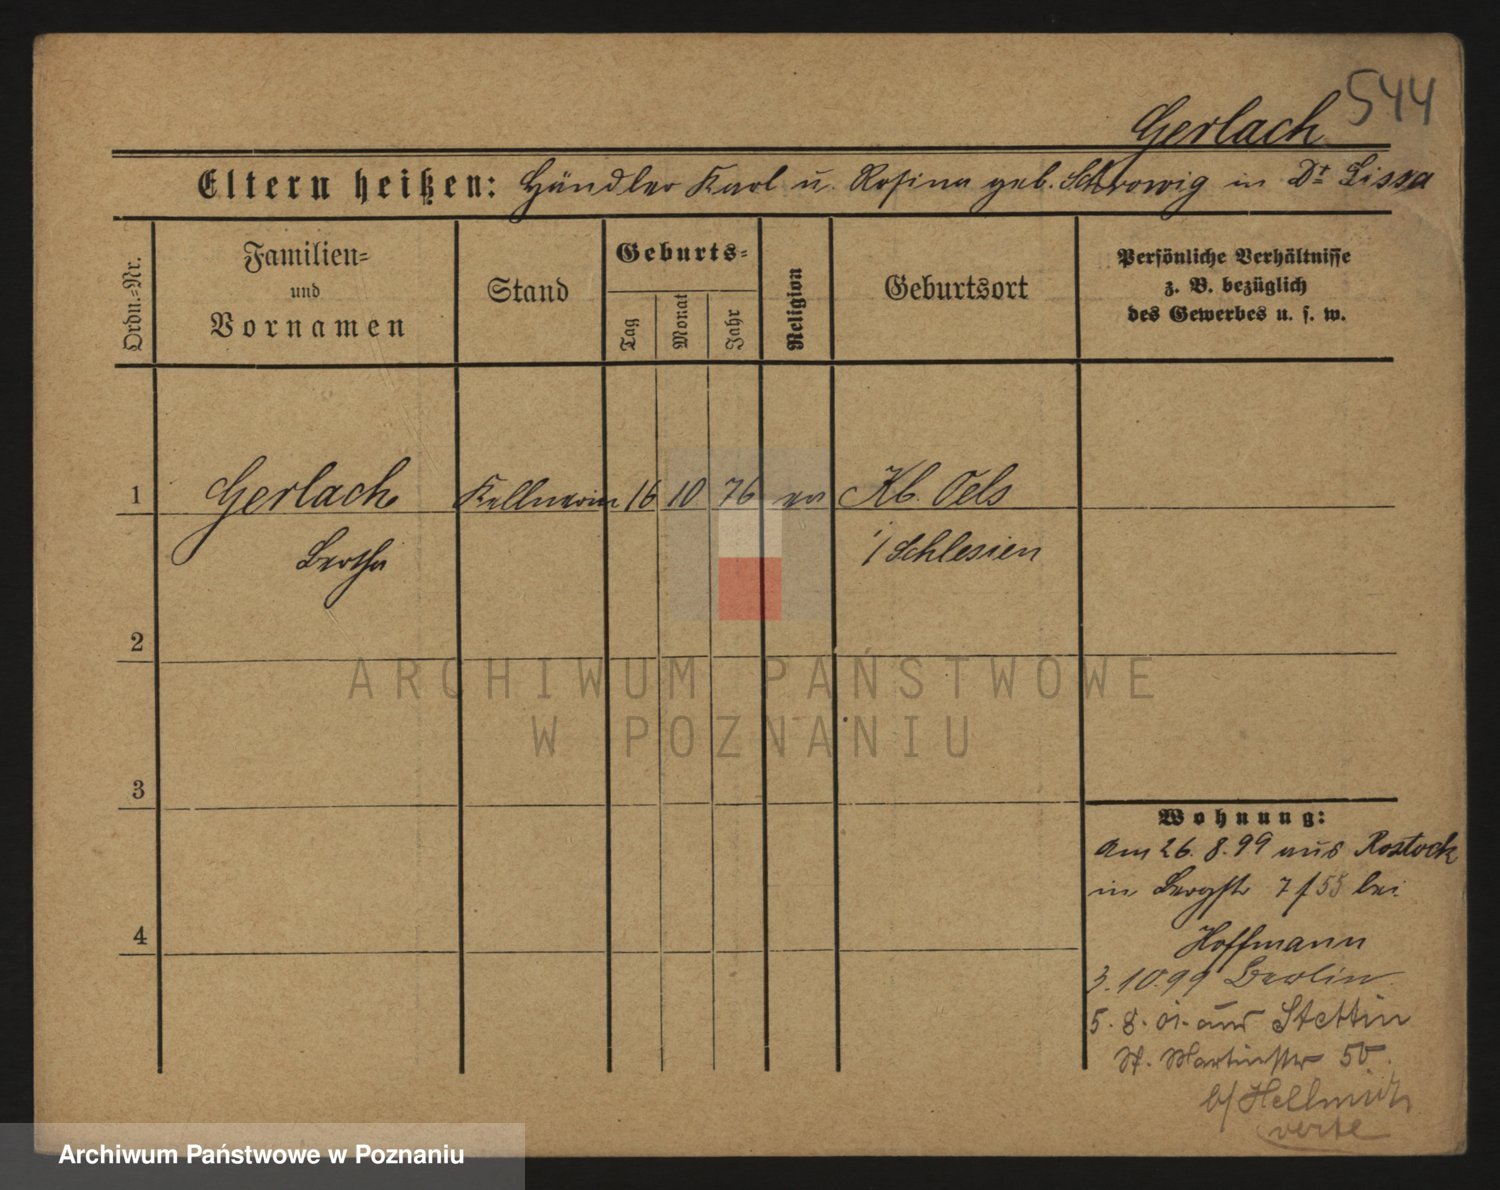 544
Gerlach
Eltern heißen: Händler Karl u. Rosina geb. in Dt Lissa
Ordn.-Nr.
Familien-
und
Vornamen
Stand
Geburts-
Tag
Monat
Jahr
Religion
Geburtsort
Persönliche Verhältnisse
z. B. bezüglich
des Gewerbes u. s. w.
1 Gerlach Kellnerin 16 10 76 ev Oels
Bertha i/Schlesien
2
ARCHIWUM PAŃSTWOWE
W POZNANIU
3
Wohnung:
am 26. 8. 99 aus Rostock
in Bergstr 7 / 55 bei
4
Hoffmann
3. 10 99 Berlin
5. 8. 01. aus Stettin
St. Martinstr 50.
b/ Hellmich
verte
Archiwum Państwowe w Poznaniu